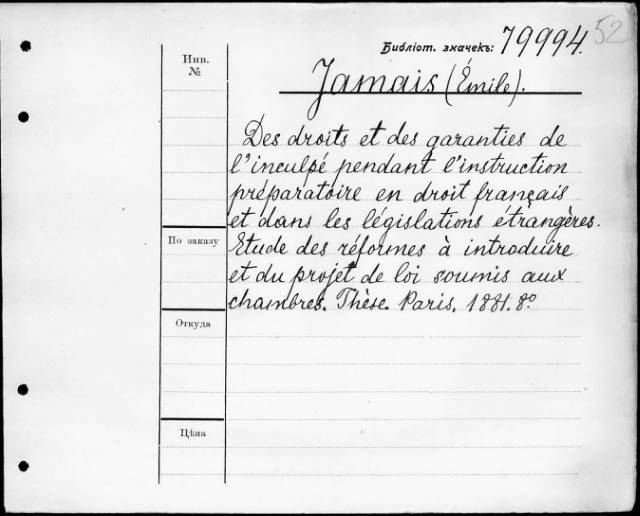 52
Библіот. значекъ: 79994.
Инв. №
Jamais (Émile).
Des droits et des garanties de
l'inculpé pendant l'instruction
préparatoire en droit français
et dans les législations étrangères.
По заказу
Etude des réformes à introduire
et du projet de loi soumis aux
chambres. Thèse. Paris. 1881. 8º
Откуда
Цѣна